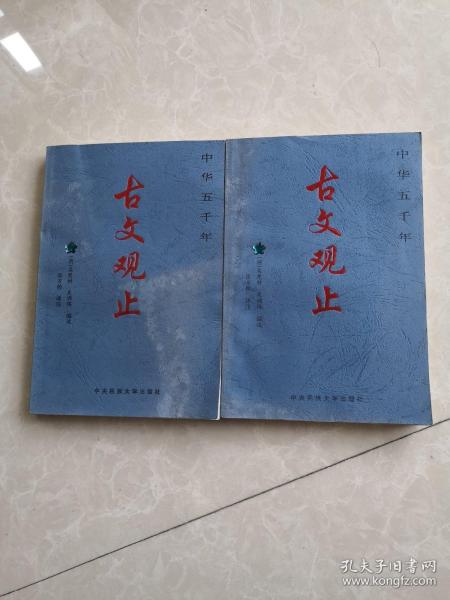 中华五千年
古文观止
中央民族大学出版社
中华五千年
古文观止
中央民族大学出版社
孔夫子旧书网
www.kongfz.com